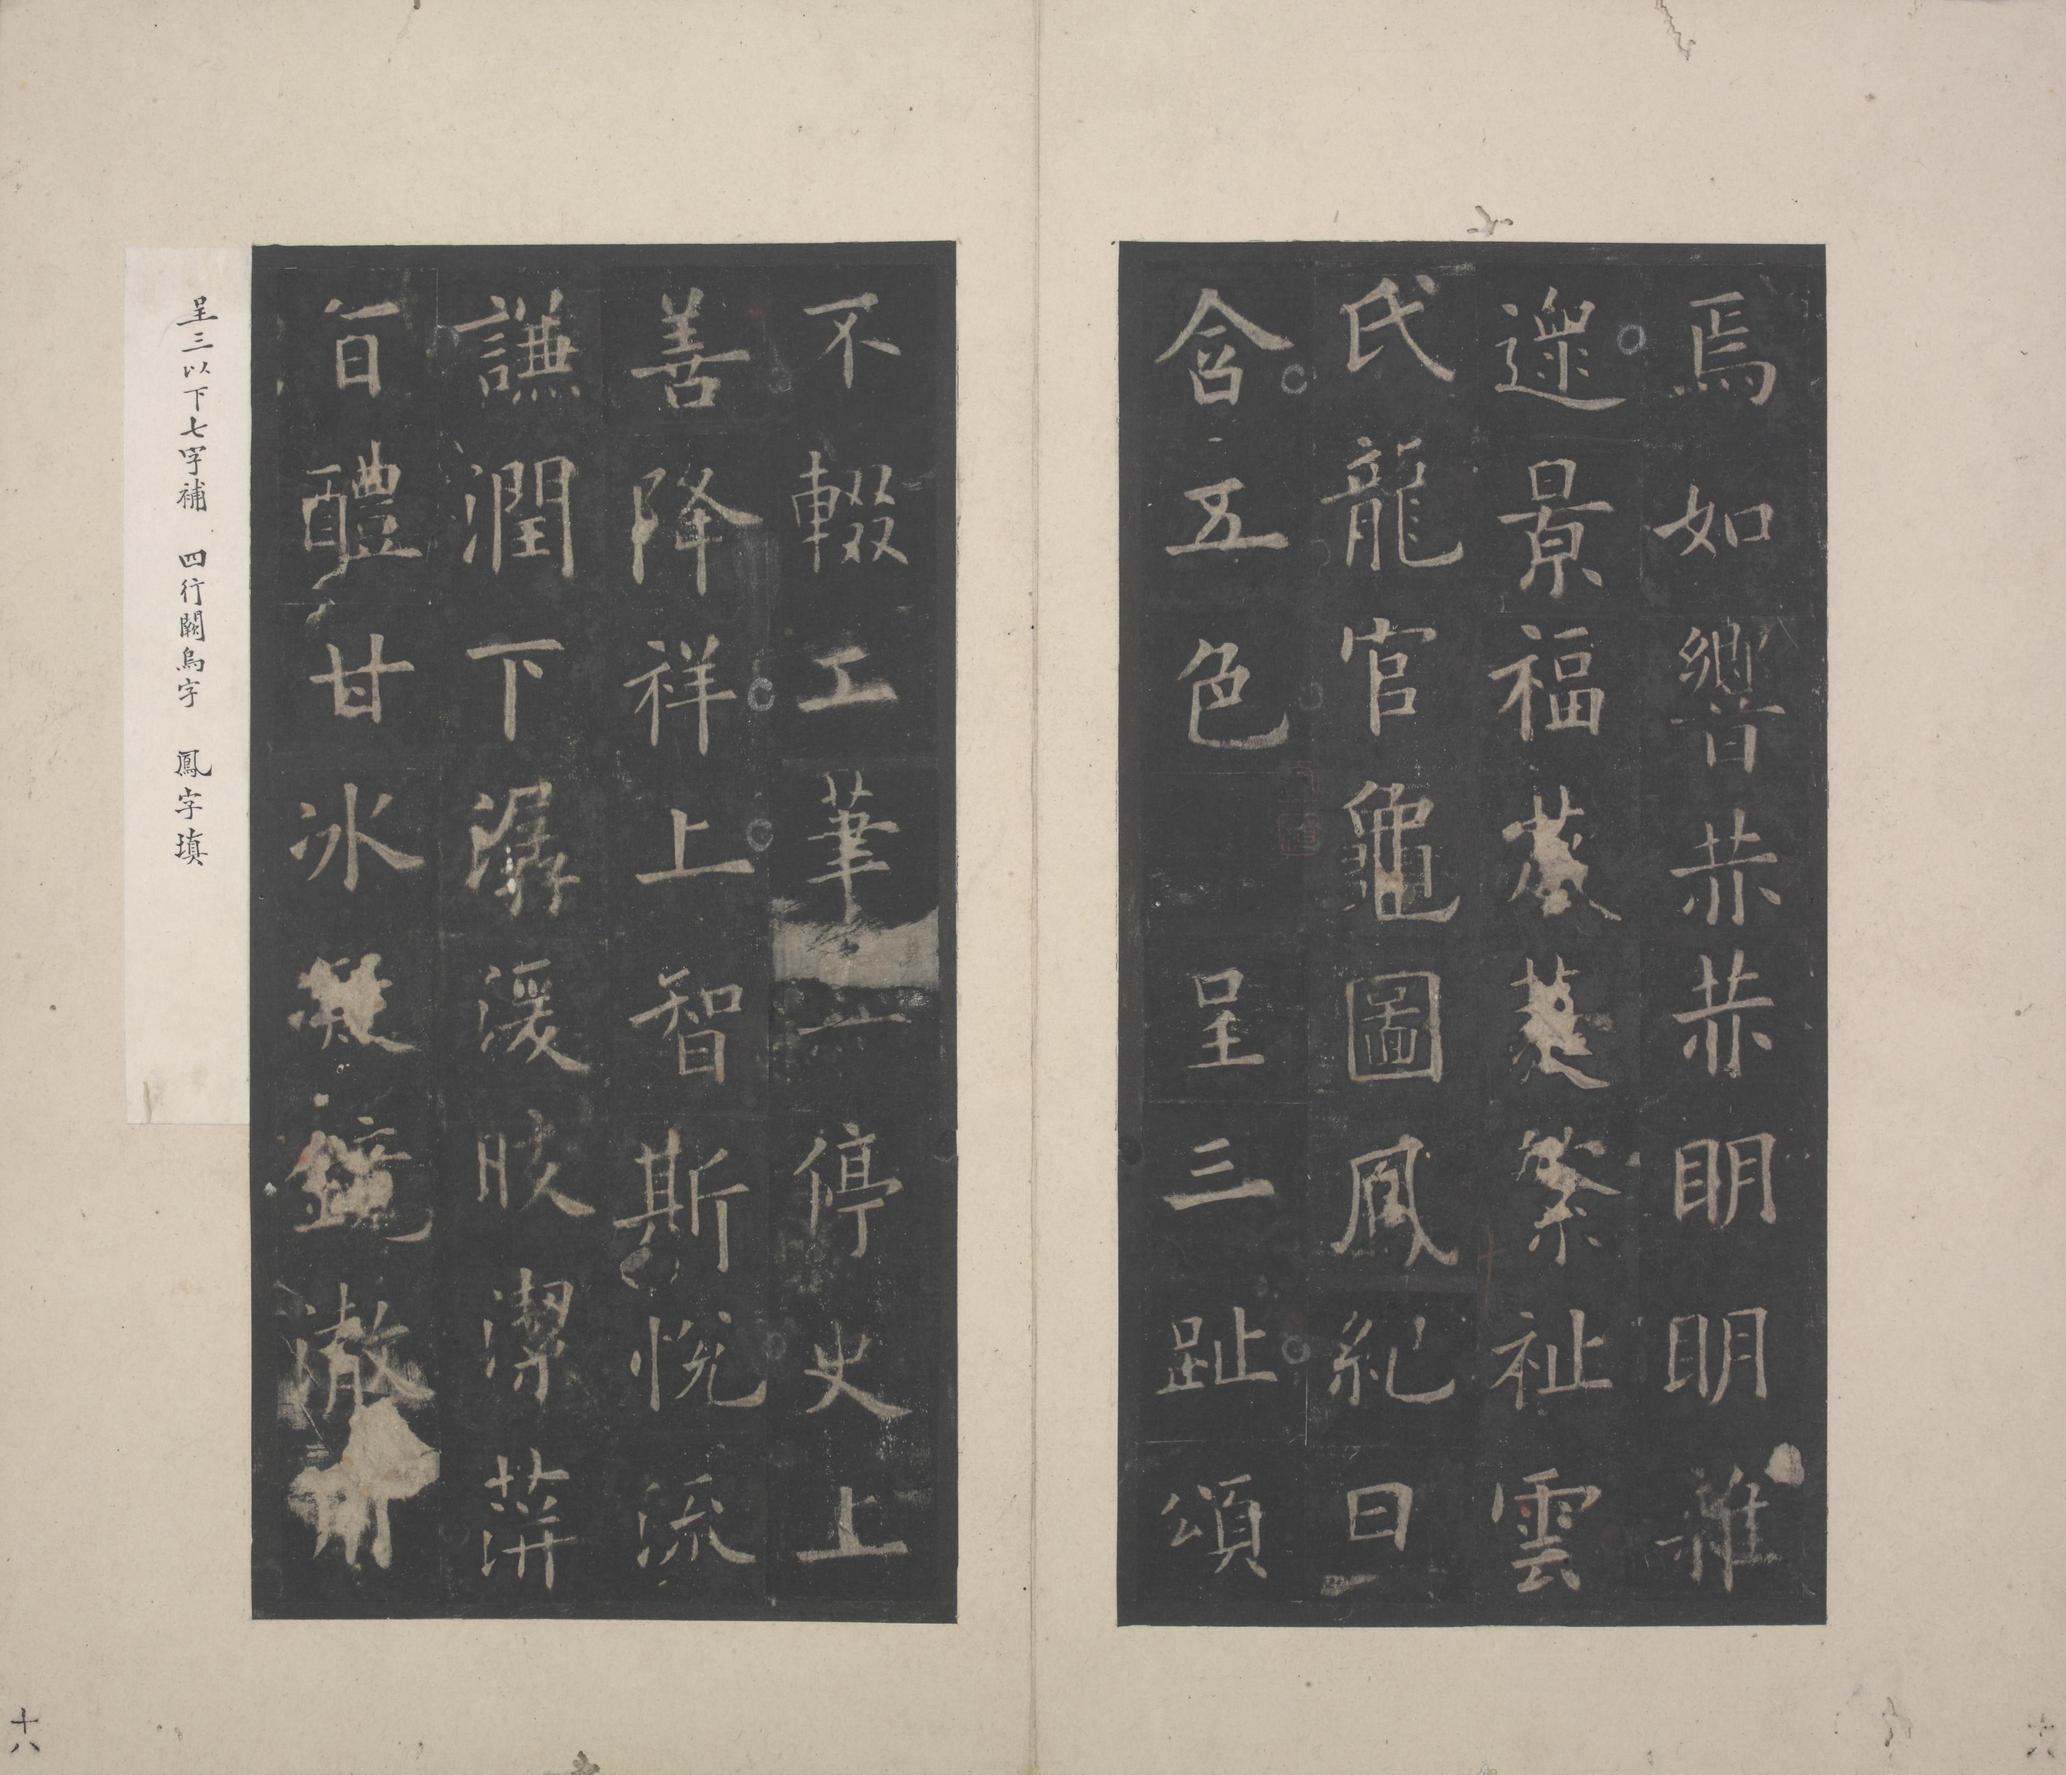 焉如響赫赫明明雜
遝景福葳蕤繁祉雲
氏龍官龜圖鳳紀日
含五色 呈三趾頌
不輟工筆 停史上
善降祥上智斯悅流
謙潤下潺湲晈潔蓱
旨醴甘冰凝鏡澈用
呈三以下七字補 四行闕烏字 鳳字填
十八